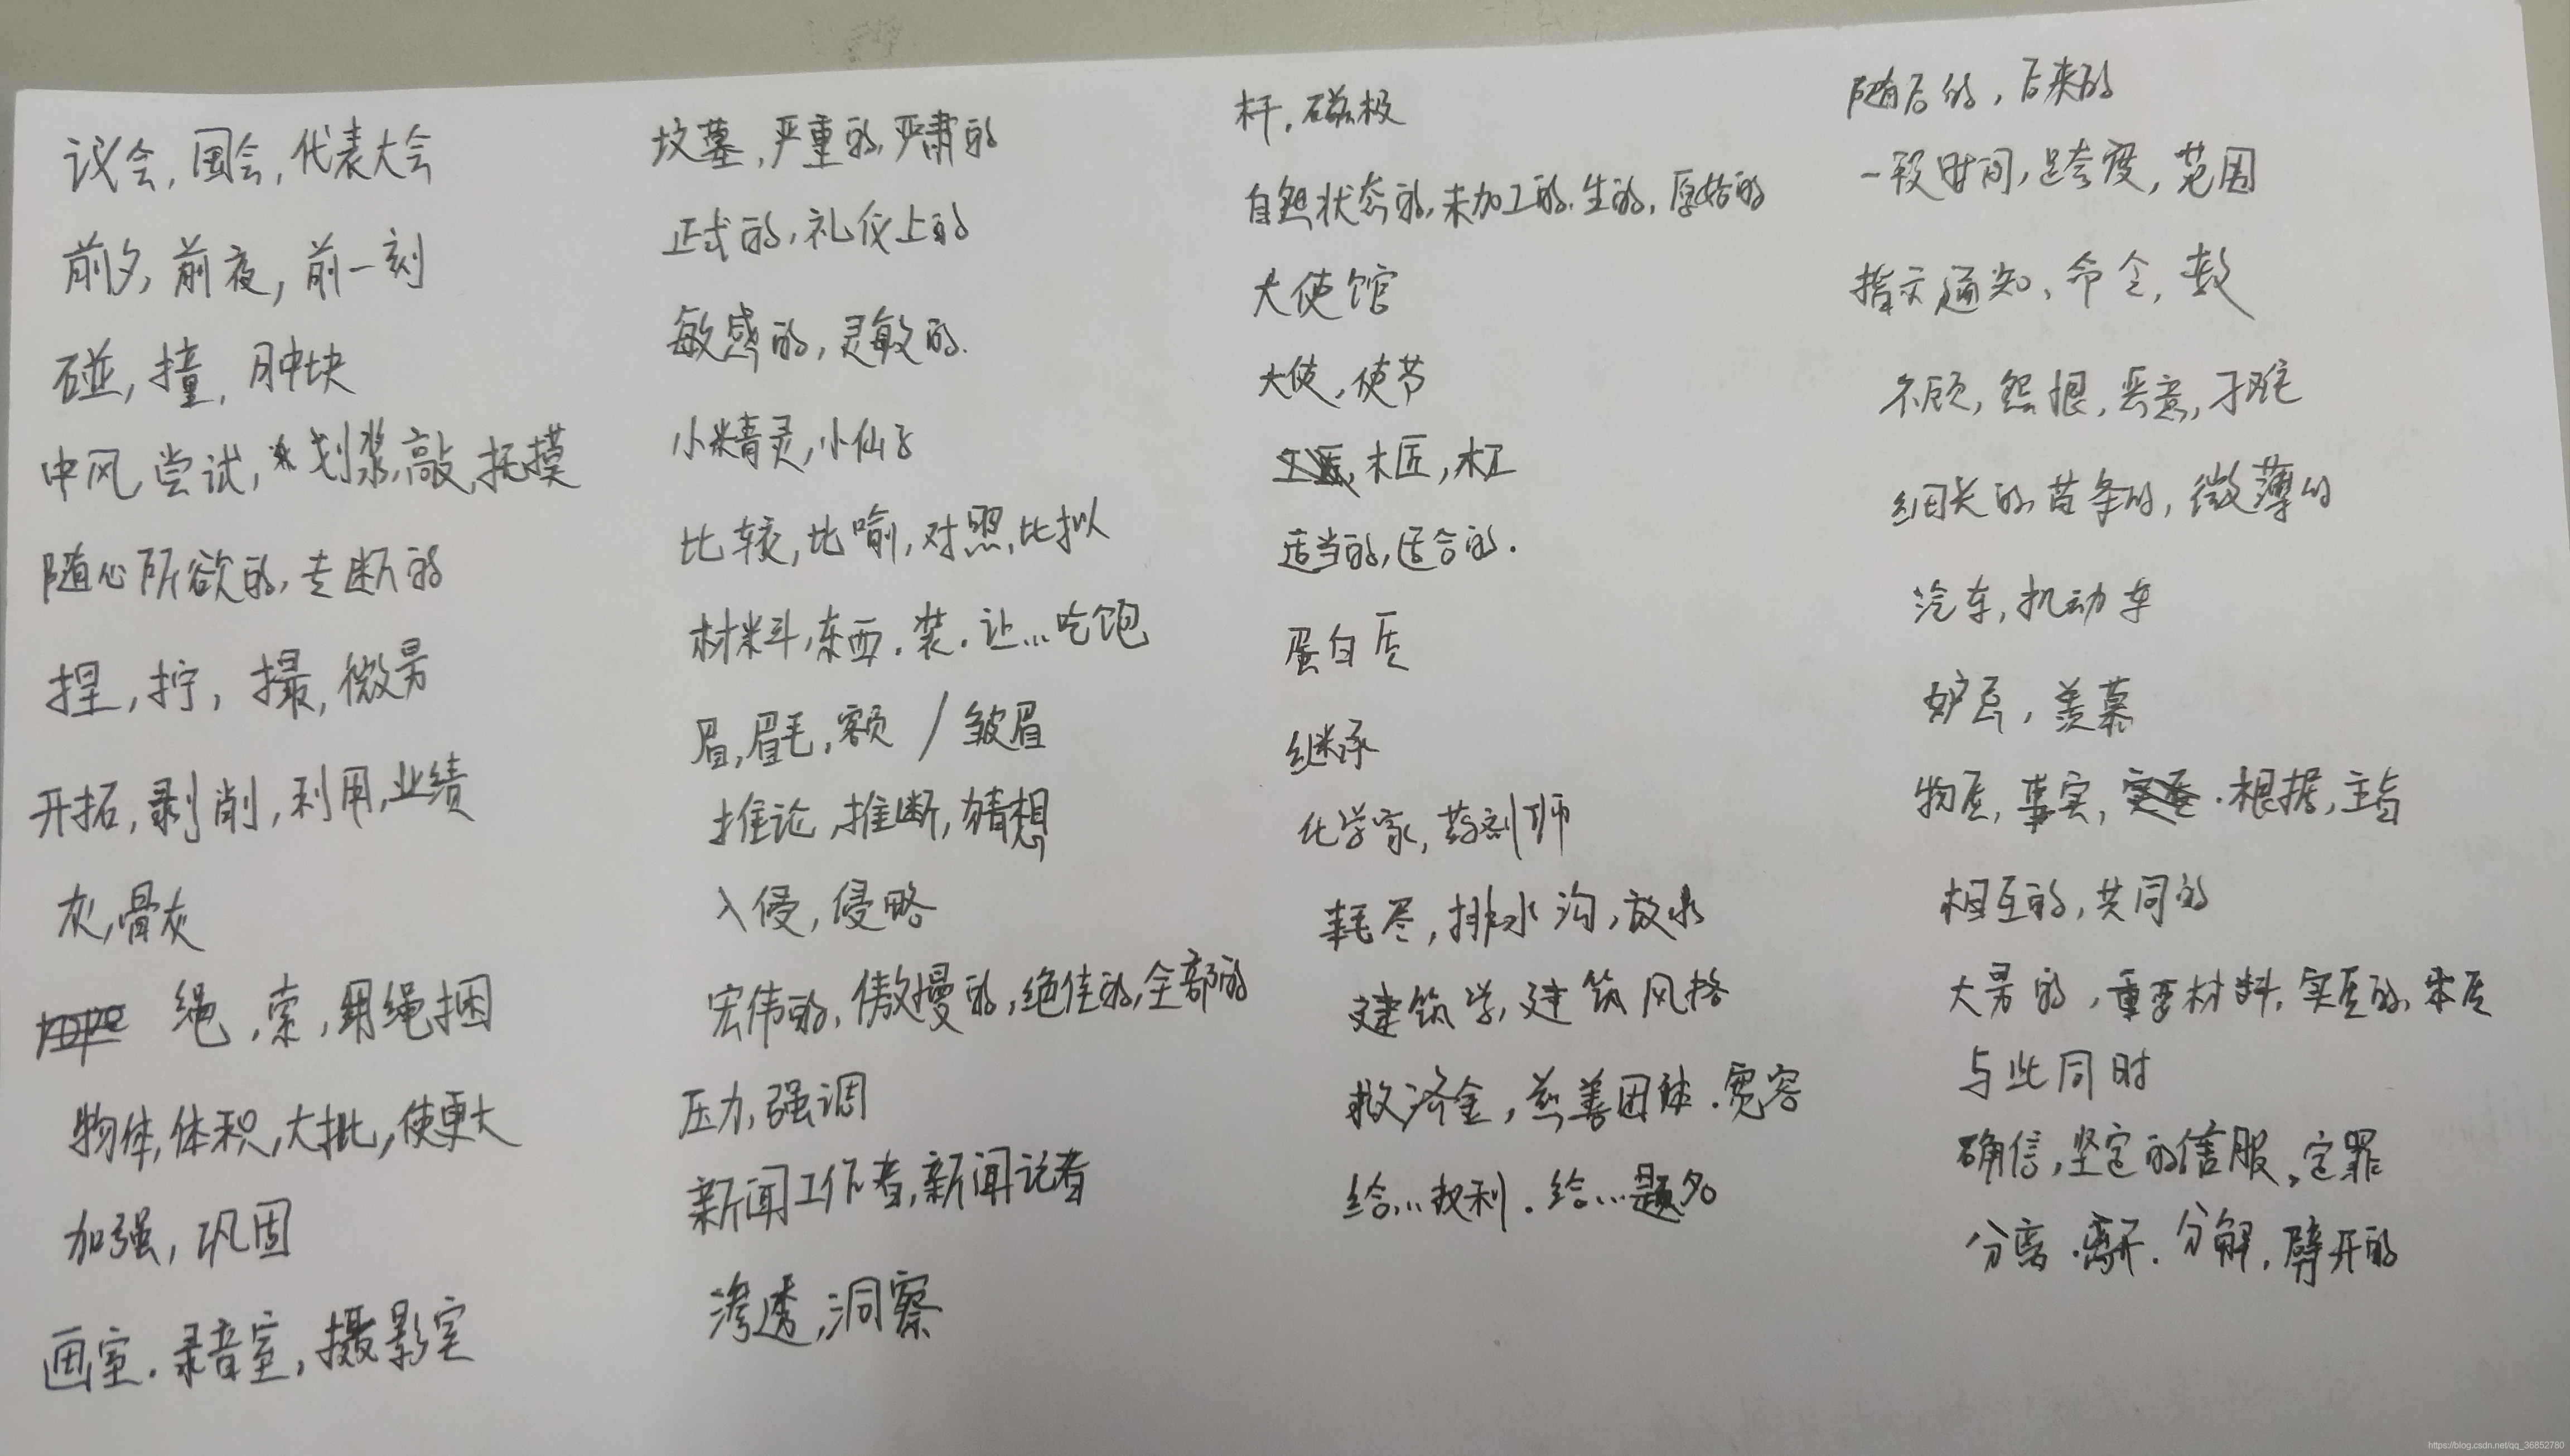 议会,国会,代表大会
前夕,前夜,前一刻
碰,撞,肿块
中风,尝试,划桨,敲,抚摸
随心所欲的,专断的
捏,拧,撮,微量
开拓,剥削,利用,业绩
灰,骨灰
绳,索,用绳捆
物体,体积,大批,使更大
加强,巩固
画室.录音室,摄影室
坟墓,严重的,严肃的
正式的,礼仪上的
敏感的,灵敏的.
小精灵,小仙子
比较,比喻,对照,比拟
材料,东西.装.让...吃饱
眉,眉毛,额/皱眉
推论,推断,猜想
入侵,侵略
宏伟的,傲慢的,绝佳的,全部的
压力,强调
新闻工作者,新闻记者
渗透,洞察
杆.磁极
自然状态的,未加工的.生的,原始的
大使馆
大使,使节
木匠,木工
适当的,适合的.
蛋白质
继承
化学家,药剂师
耗尽,排水沟,放水
建筑学,建筑风格
救济金,慈善团体.宽容
给...权利.给...题名
随后的,后来的
一段时间,跨度,范围
指示通知,命令,教
不顾,怨恨,恶意,刁难
细长的,苗条的,微薄的
汽车,机动车
妒忌,羡慕
物质,事实,根据,主旨
相互的,共同的
大量的,重要材料,实质的,本质
与此同时
确信,坚定的信服,定罪
分离.离开.分解,劈开的
https://blog.csdn.net/qq_36852780